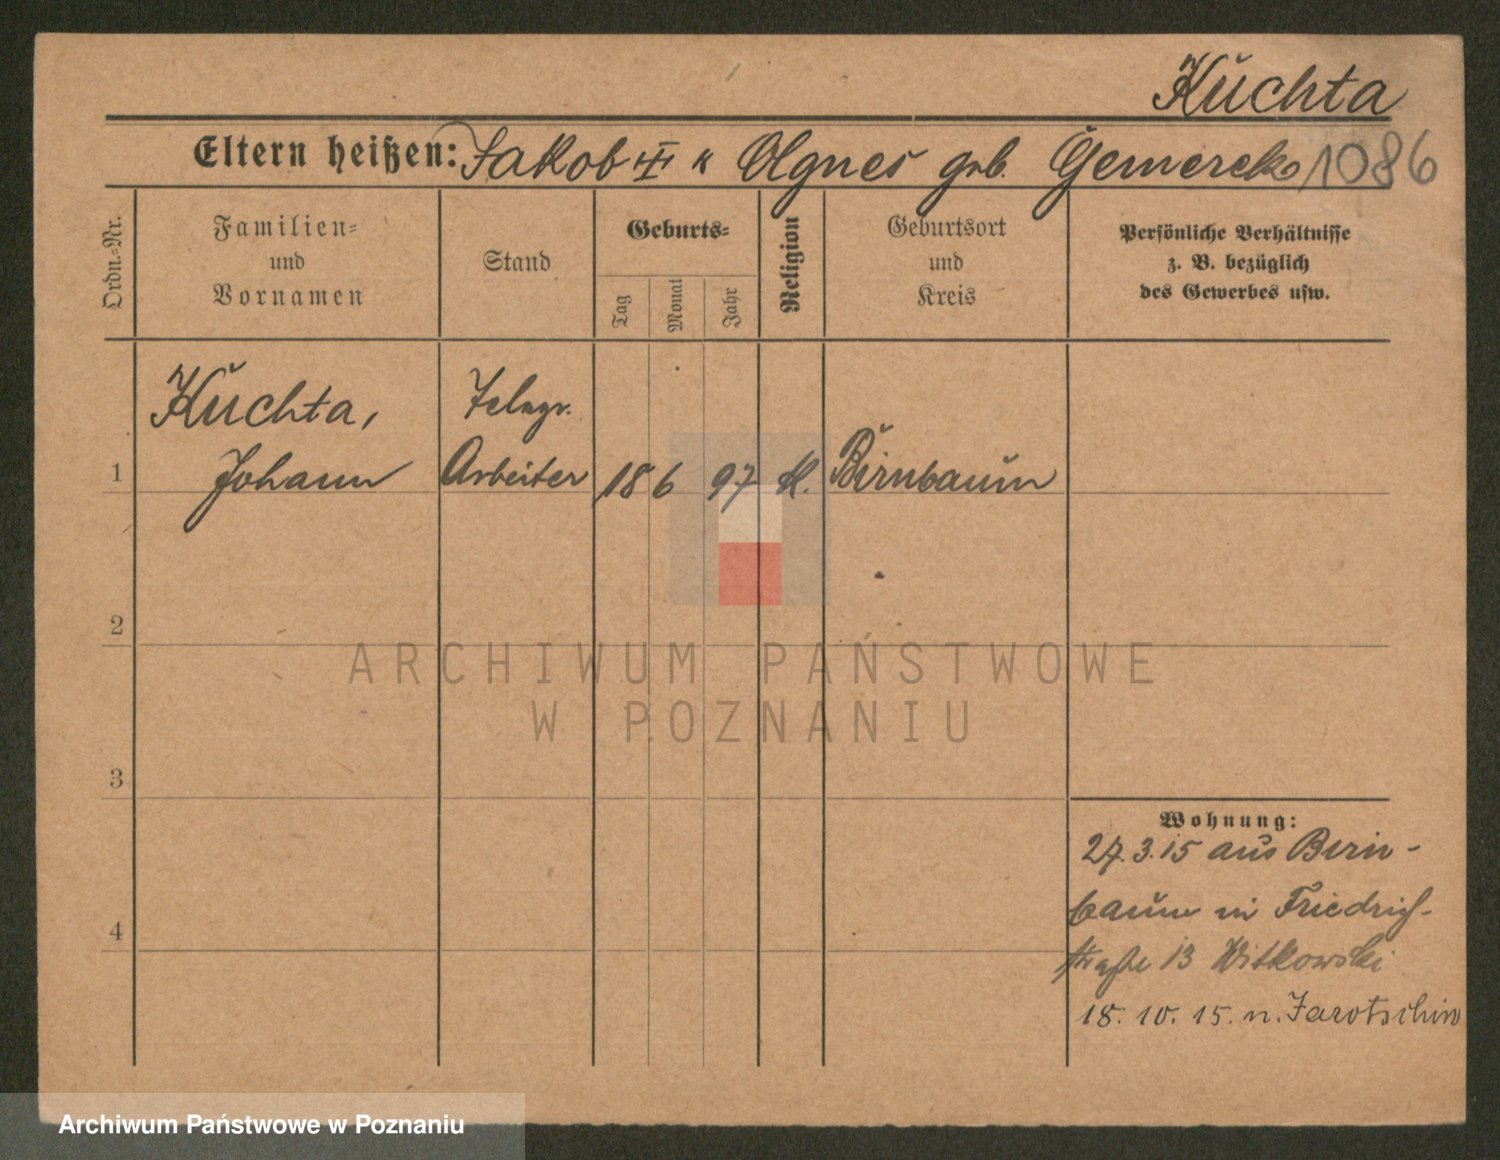 Kuchta
Eltern heißen: Jakob u Agnes geb. 1086
Ordn.-Nr.
Familien-
und
Vornamen
Stand
Geburts-
Tag
Monat
Jahr
Religion
Geburtsort
und
Kreis
Persönliche Verhältnisse
z. B. bezüglich
des Gewerbes usw.
Kuchta, Telegr.
1 Johann Arbeiter 18 6 97 k. Birnbaum
2
3
4
Wohnung:
27.3.15 aus Birn-
baum in Friedrich-
straße 13 Witkowski
18. 10. 15. n. Jarotschin
ARCHIWUM PAŃSTWOWE
W POZNANIU
Archiwum Państwowe w Poznaniu